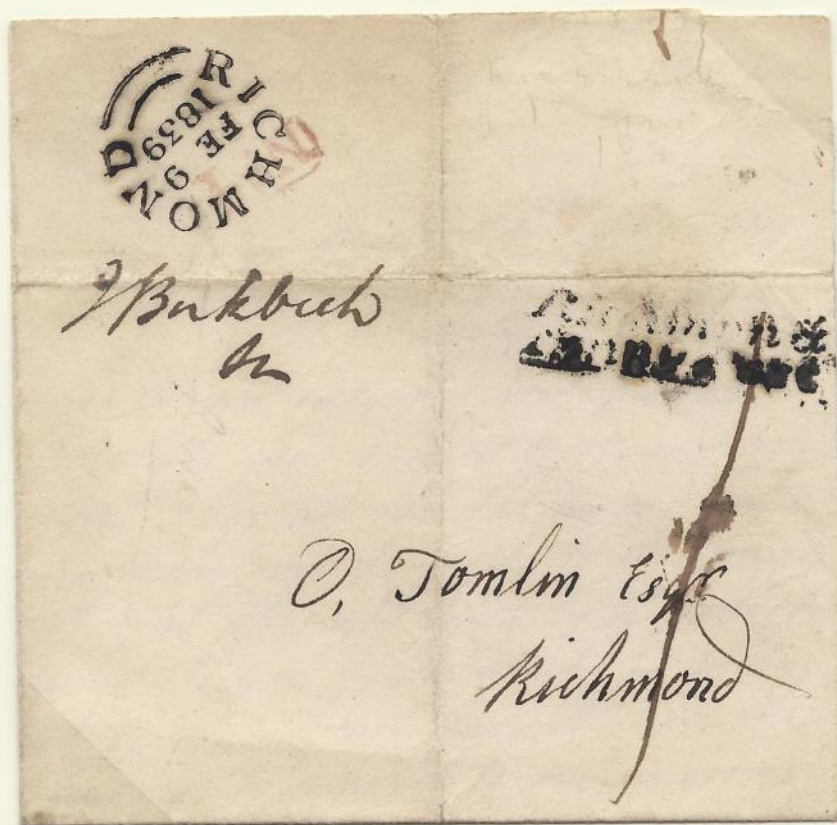 RICHMOND
FE 9
1839
J Birkbeck
O, Tomlin Esqr
Richmond